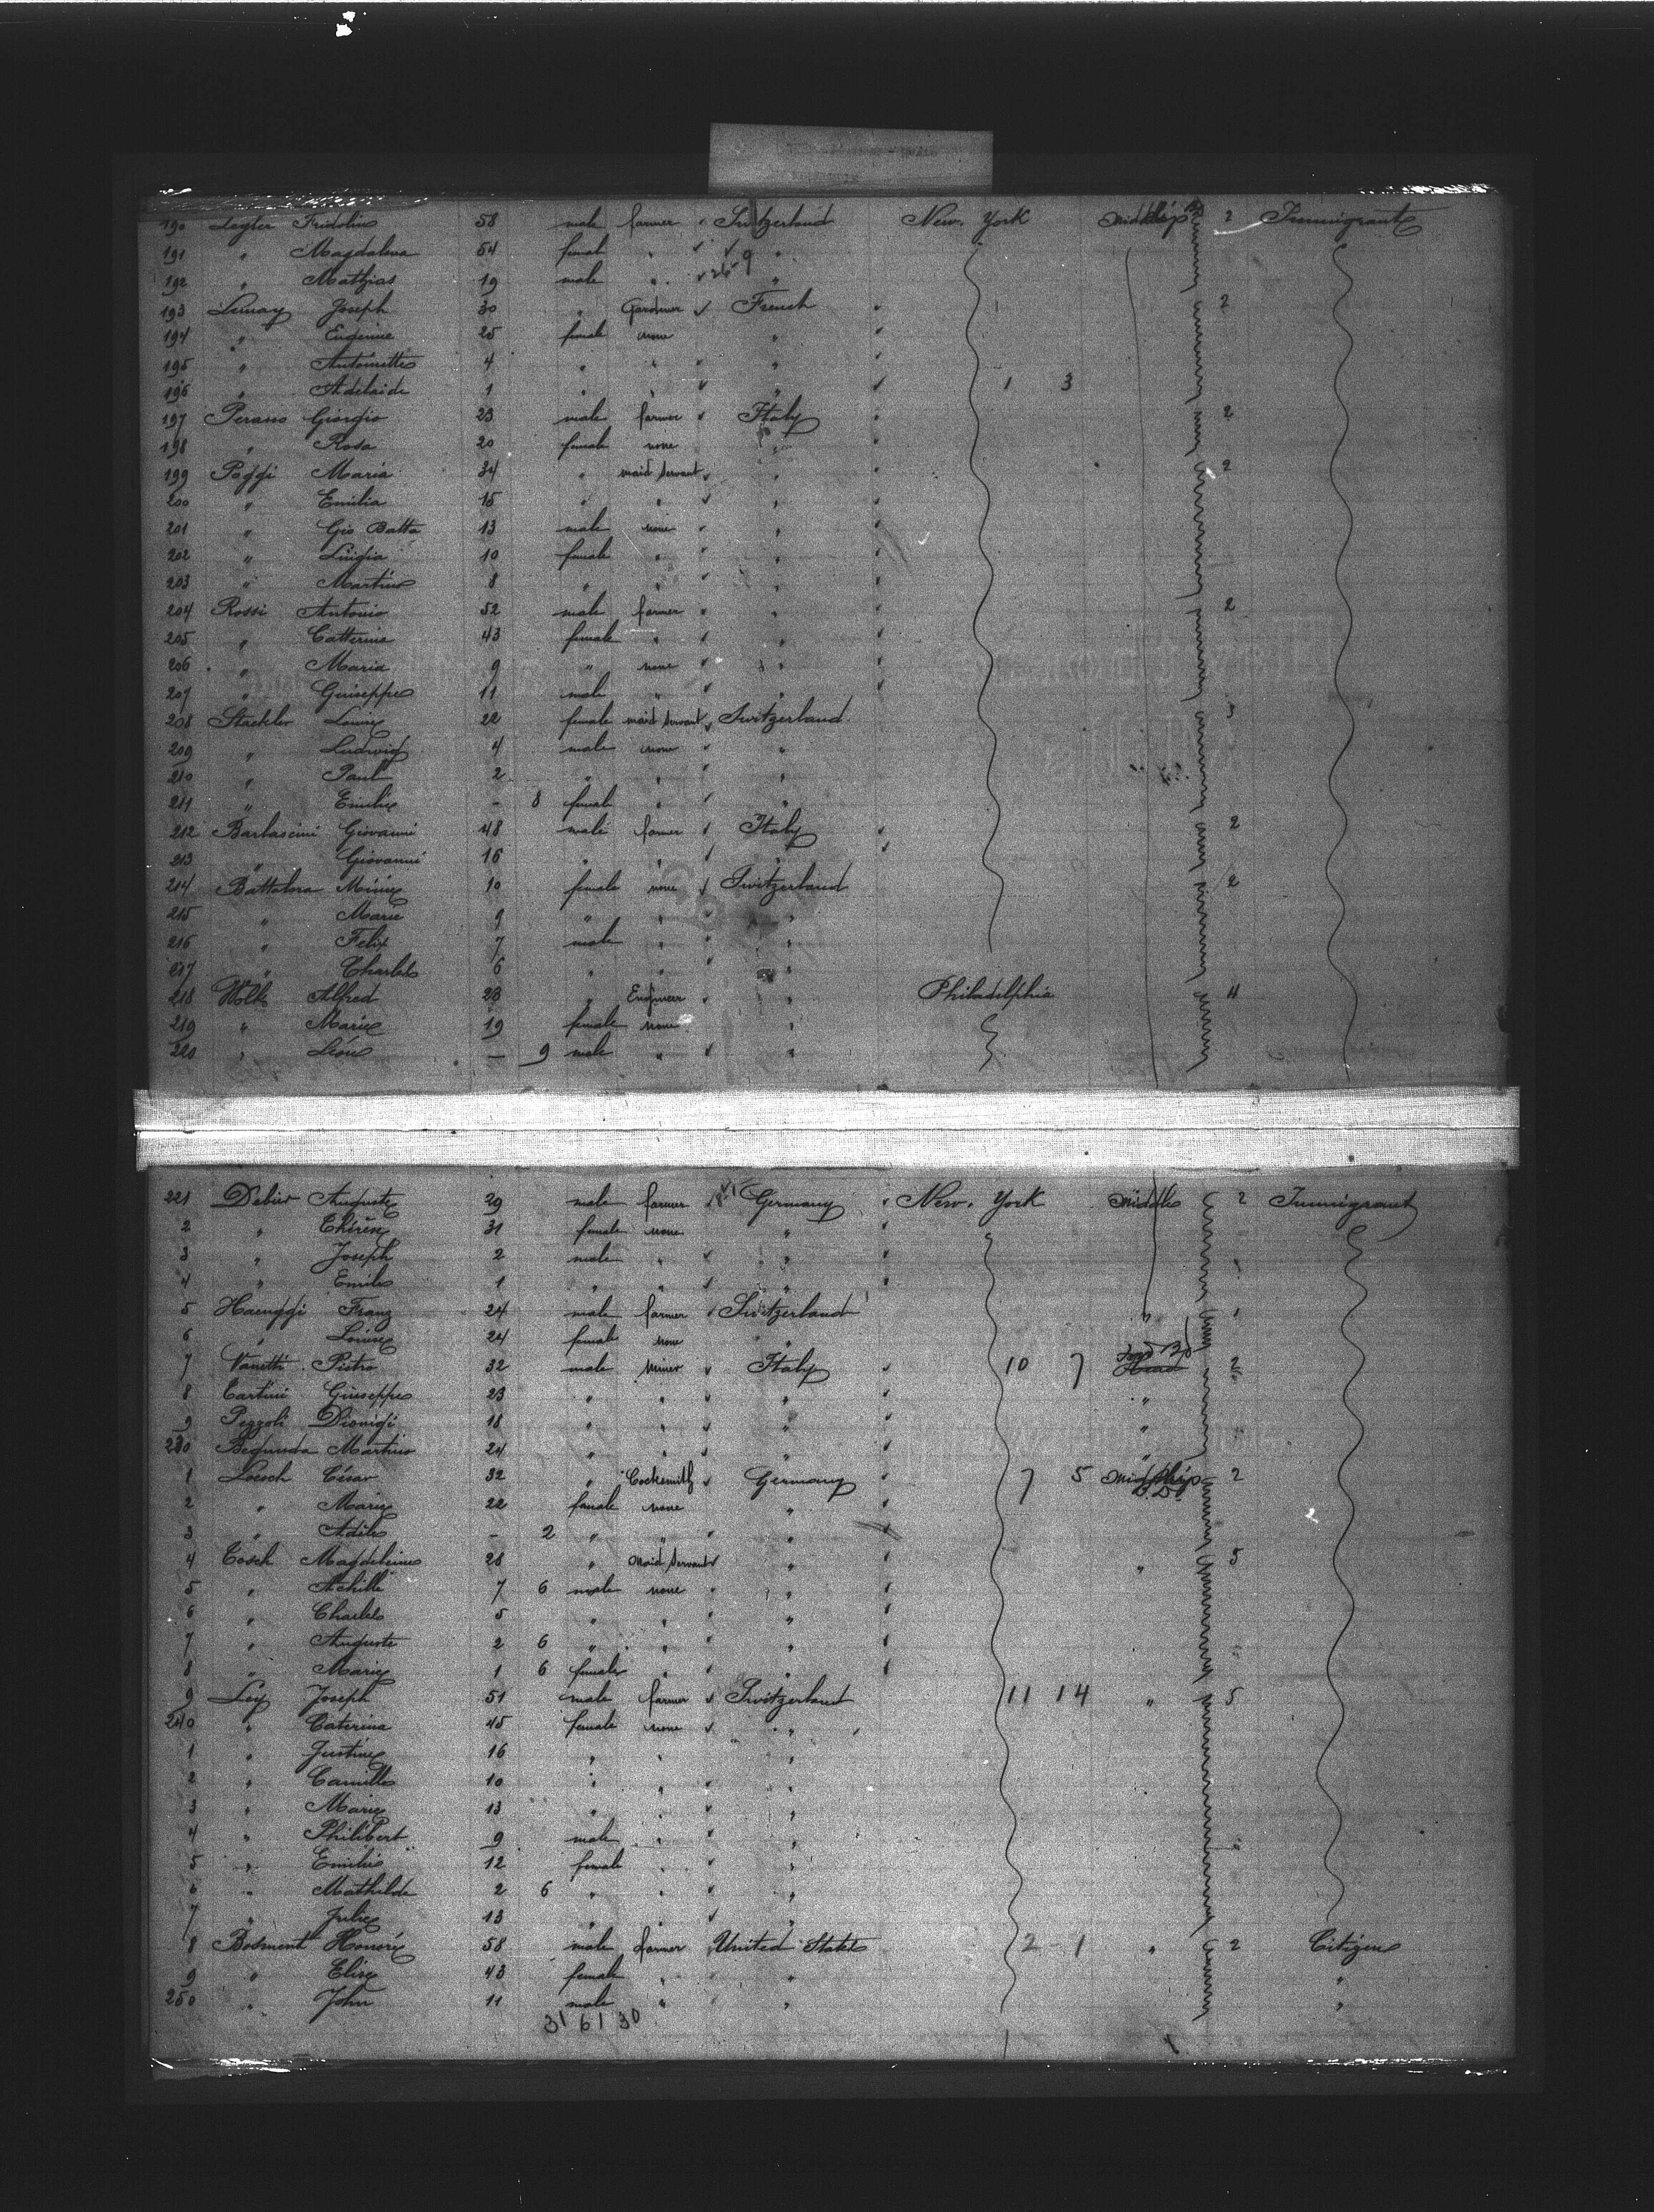 190 Legler Fridolin 58 male farmer Switzerland New. York Midship 2 Immigrant
191 " Magdalena 54 female " "
192 " Mathias 19 male " "
193 Lemay Joseph 30 " Gardner French 2
194 " Eugenie 25 female none "
195 " Antoinette 4 " " "
196 " Adelaide 1 " " " 1 3
197 Perasso Giorgio 23 male farmer Italy 2
198 " Rosa 20 female none "
199 Poggi Maria 34 " maid servant " 2
200 " Emilia 15 " " "
201 " Gio Batta 13 male none "
202 " Luigia 10 female " "
203 " Martino 8 " " "
204 Rossi Antonio 52 male farmer " 2
205 " Catterina 43 female " "
206 " Maria 9 " none "
207 " Guiseppe 11 male " "
208 Stackler Louise 22 female maid servant Switzerland 5
209 " Ludwig 4 male none "
210 " Paul 2 " " "
211 " Emilie - 8 female " "
212 Barbascini Giovanni 48 male farmer Italy 2
213 " Giovanni 16 " " "
214 Battalora 10 female none Switzerland 2
215 " Marie 9 " " "
216 " Felix 7 male " "
217 " Charles 6 " " "
218 Wolk Alfred 23 " Engineer " Philadelphia 11
219 " Marie 19 female none "
220 " Léon - 9 male " "
221 Auguste 29 male farmer Germany New. York Middle 2 Immigrant
2 " Thérèse 31 female none "
3 " Joseph 2 male " "
4 " Emile 1 " " "
5 Haenggi Franz 24 male farmer Switzerland " 1
6 " Louise 24 female none "
7 Vanetti Pietro 32 male miner Italy 10 7 2
8 Cartini Giuseppe 23 " " " "
9 Pezzoli Dionigi 18 " " " "
230 Bedunda Martino 24 " " " "
1 Loesch César 32 " Cocksmith Germany 7 5 Midship 2
2 " Marie 22 female none "
3 " Adile - 2 " " "
4 Tosch Magdeleine 28 " Maid servant " " 5
5 " Achille 7 6 male none "
6 " Charles 5 " " "
7 " Auguste 2 6 " " "
8 " Marie 1 6 female " "
9 Ley Joseph 51 male farmer Switzerland 11 14 " 5
240 " Caterina 45 female none "
1 " Justine 16 " " "
2 " Camille 10 " " "
3 " Marie 13 " " "
4 " Philibert 9 male " "
5 " Emilie 12 female " "
6 " Mathilde 2 6 " " "
7 " Julie 13 " "
8 Bosment Honoré 58 male farmer United States 2 - 1 " 2 Citizen
9 " Elise 43 female " " "
250 " John 11 male " " "
31 61 30